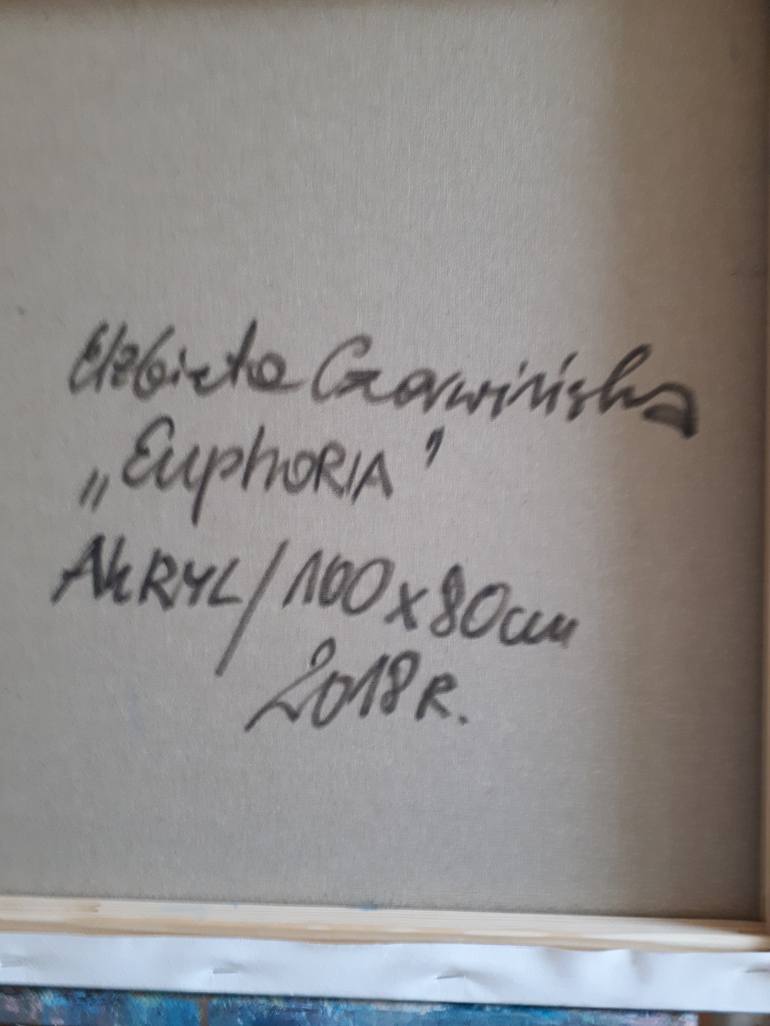 Elżbieta Czarwińska
„Euphoria”
AKRYL/100x80cm
2018 R.